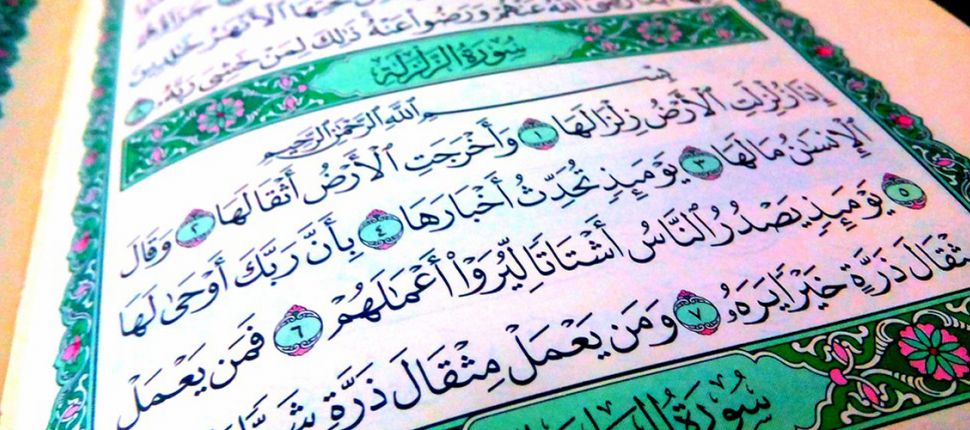 جَزَآؤُهُمْ
تَحْتِهَا ٱلْأَنْهَٰرُ خَٰلِدِينَ
رَّضِىَ ٱللَّهُ عَنْهُمْ وَرَضُوا۟ عَنْهُ ذَٰلِكَ لِمَنْ خَشِىَ رَبَّهُۥ ٨
سُورَةُ الزَّلْزَلَةِ
بِسْمِ ٱللَّهِ ٱلرَّحْمَٰنِ ٱلرَّحِيمِ
إِذَا زُلْزِلَتِ ٱلْأَرْضُ زِلْزَالَهَا ١ وَأَخْرَجَتِ ٱلْأَرْضُ أَثْقَالَهَا ٢ وَقَالَ
ٱلْإِنسَٰنُ مَا لَهَا ٣ يَوْمَئِذٍ تُحَدِّثُ أَخْبَارَهَا ٤ بِأَنَّ رَبَّكَ أَوْحَىٰ لَهَا
٥ يَوْمَئِذٍ يَصْدُرُ ٱلنَّاسُ أَشْتَاتًا لِّيُرَوْا۟ أَعْمَٰلَهُمْ ٦ فَمَن يَعْمَلْ
مِثْقَالَ ذَرَّةٍ خَيْرًا يَرَهُۥ ٧ وَمَن يَعْمَلْ مِثْقَالَ ذَرَّةٍ
سُورَةُ